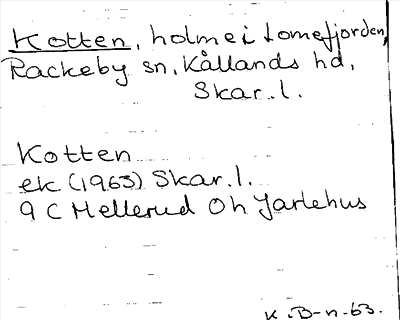 Kotten, holme i Lomefjorden,
Rackeby sn, Kållands hd,
Skar.l.
Kotten
ek (1963) Skar.l.
9 C Mellerud Öh Jarlehus
K.B-n-63.